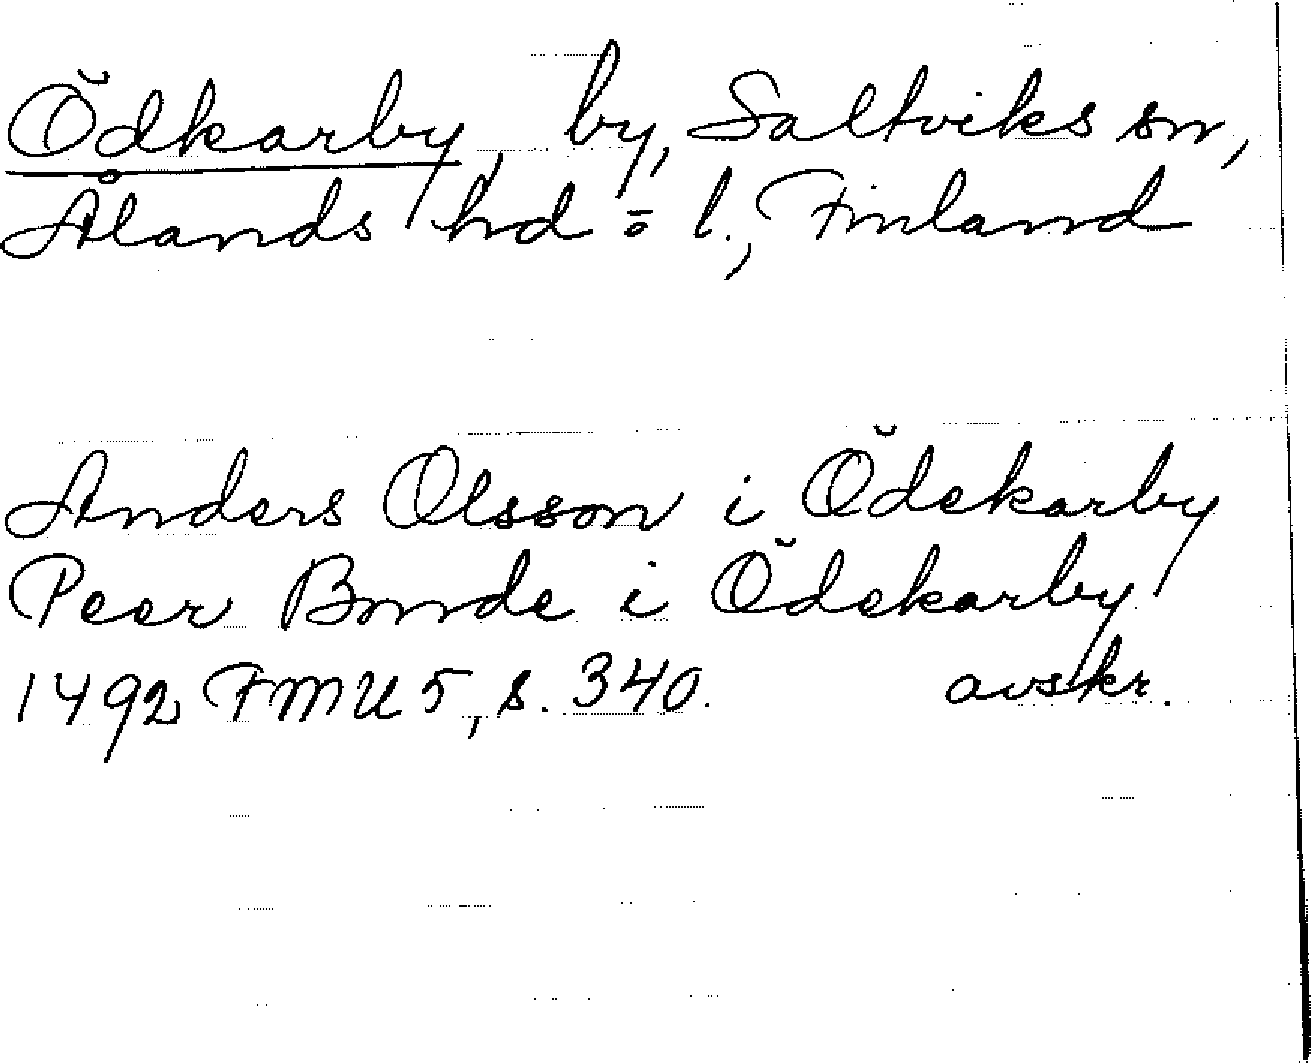 Ödkarby, by, Saltviks sn,
Ålands hd o l., Finland
Anders Olsson i Ödekarby
Peer Bonde i Ödekarby
1492 FMU 5, s. 340. avskr.